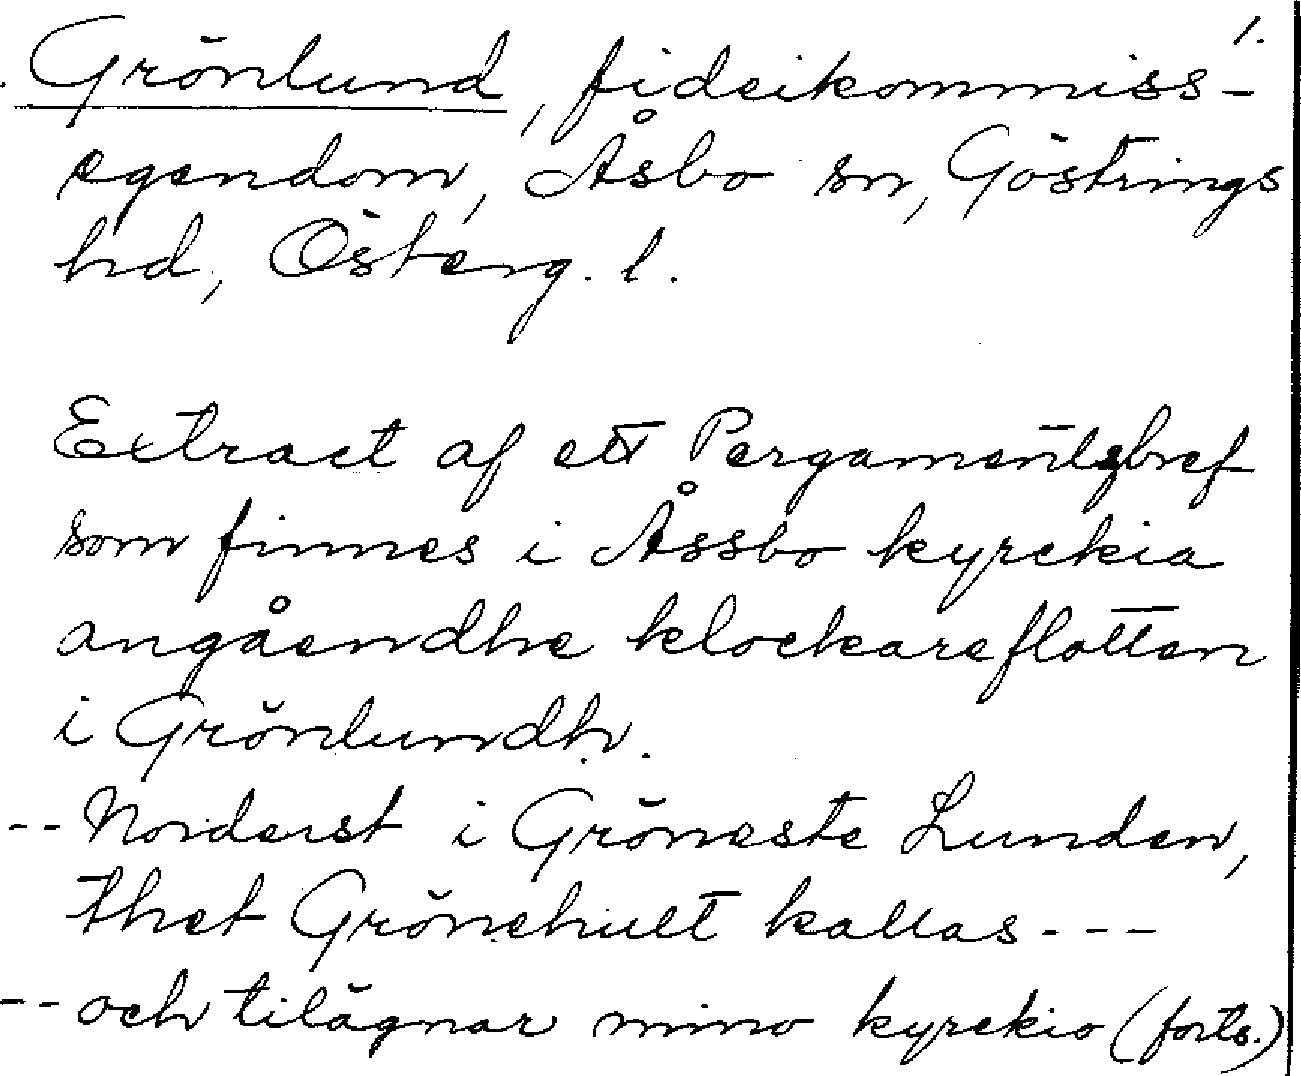 1.
Grönlund, fideikommiss-
egendom, Åsbo sn, Göstrings
hd, Österg. l.
Extract af ett Pergamentzbref
som finnes i Åssbo kyrckia
angåendhe klockareflotten
i Grönlundh.
-- Norderst i Gröneste Lunden,
thet Grönehult kallas ---
-- och tilägnar mino kyrckio (forts.)